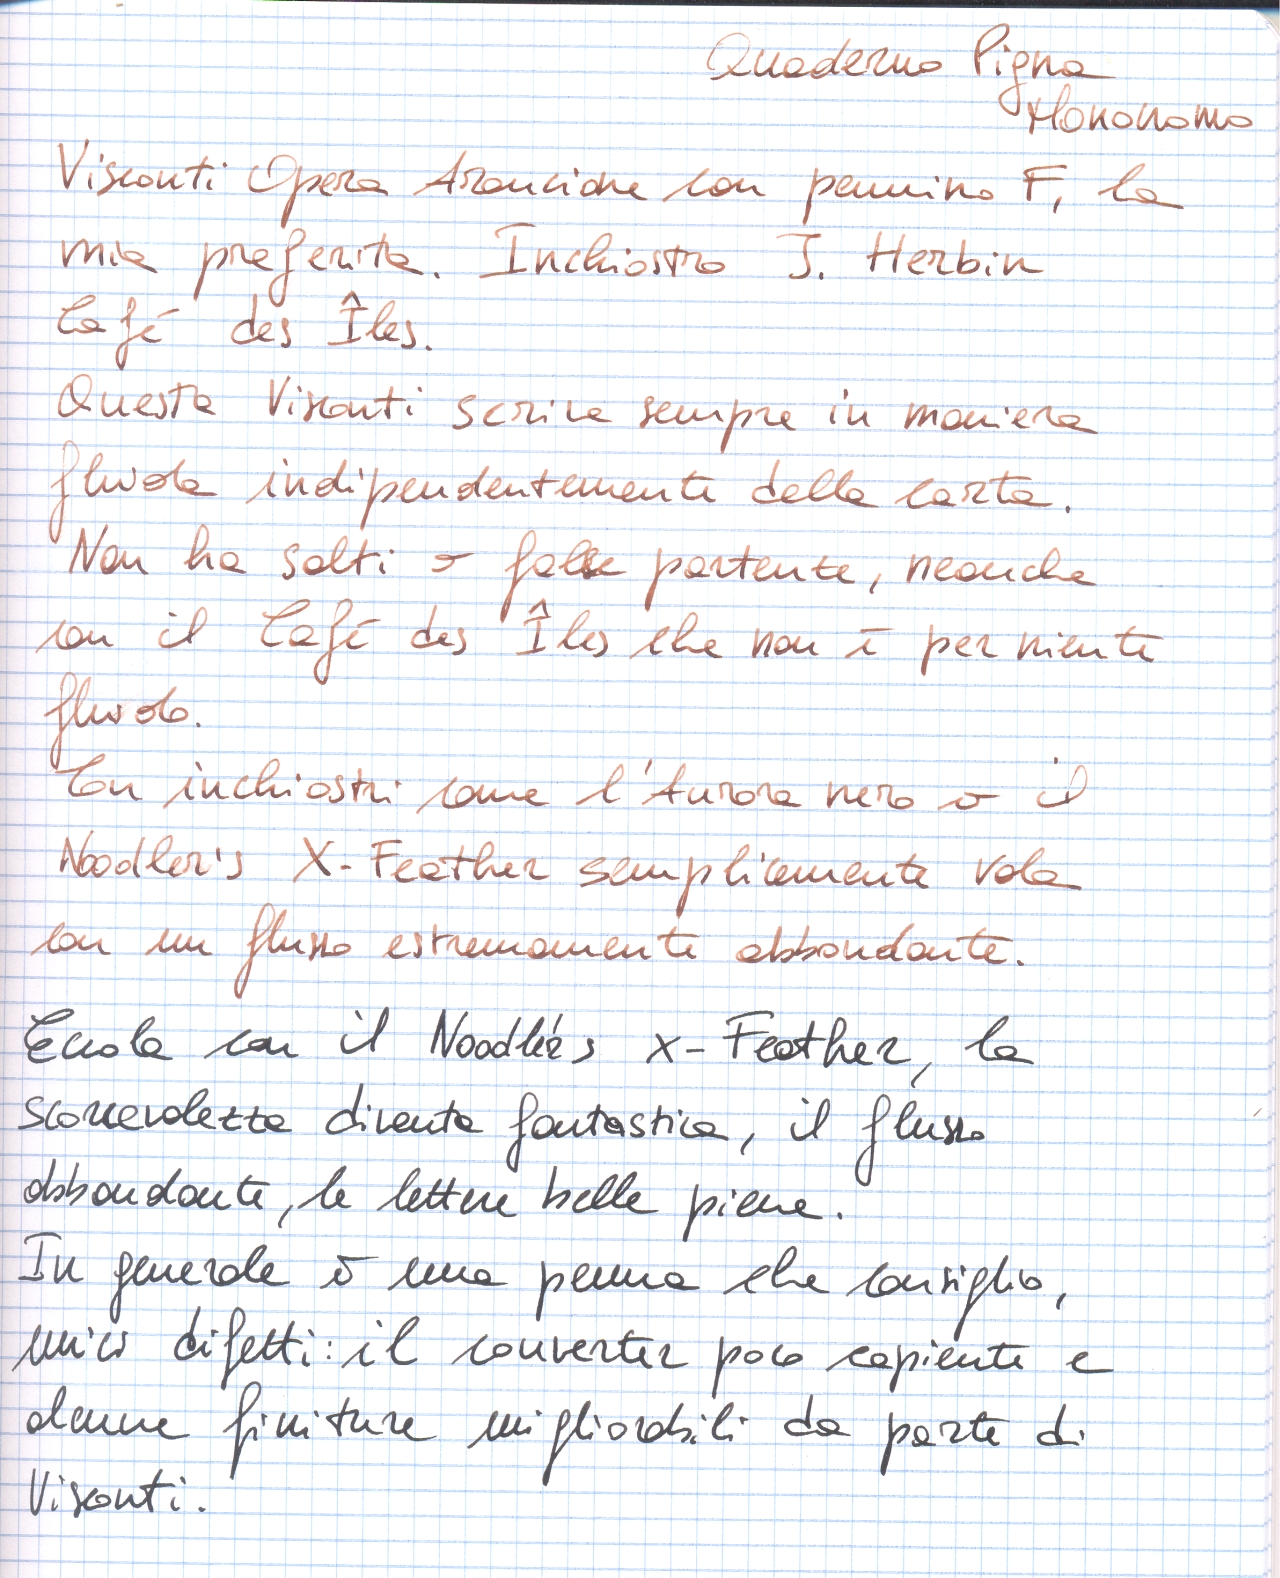 Quaderno Pigna
Monocromo
Visconti Opera Arancione con pennino F, la
mia preferita. Inchiostro J. Herbin
Café des Îles.
Questa Visconti scrive sempre in maniera
fluida indipendentemente dalla carta.
Non ha salti o false partente, neanche
con il Café des Îles che non è per niente
fluido.
Con inchiostri come l'Aurora nero o il
Noodler's X-Feather semplicemente vola
con un flusso estremamente abbondante.
Eccola con il Noodler's X-Feather, la
scorrevolezza diventa fantastica, il flusso
abbondante, le lettere belle piene.
In generale è una penna che consiglio,
unici difetti: il converter poco capiente e
alcune finiture migliorabili da parte di
Visconti.